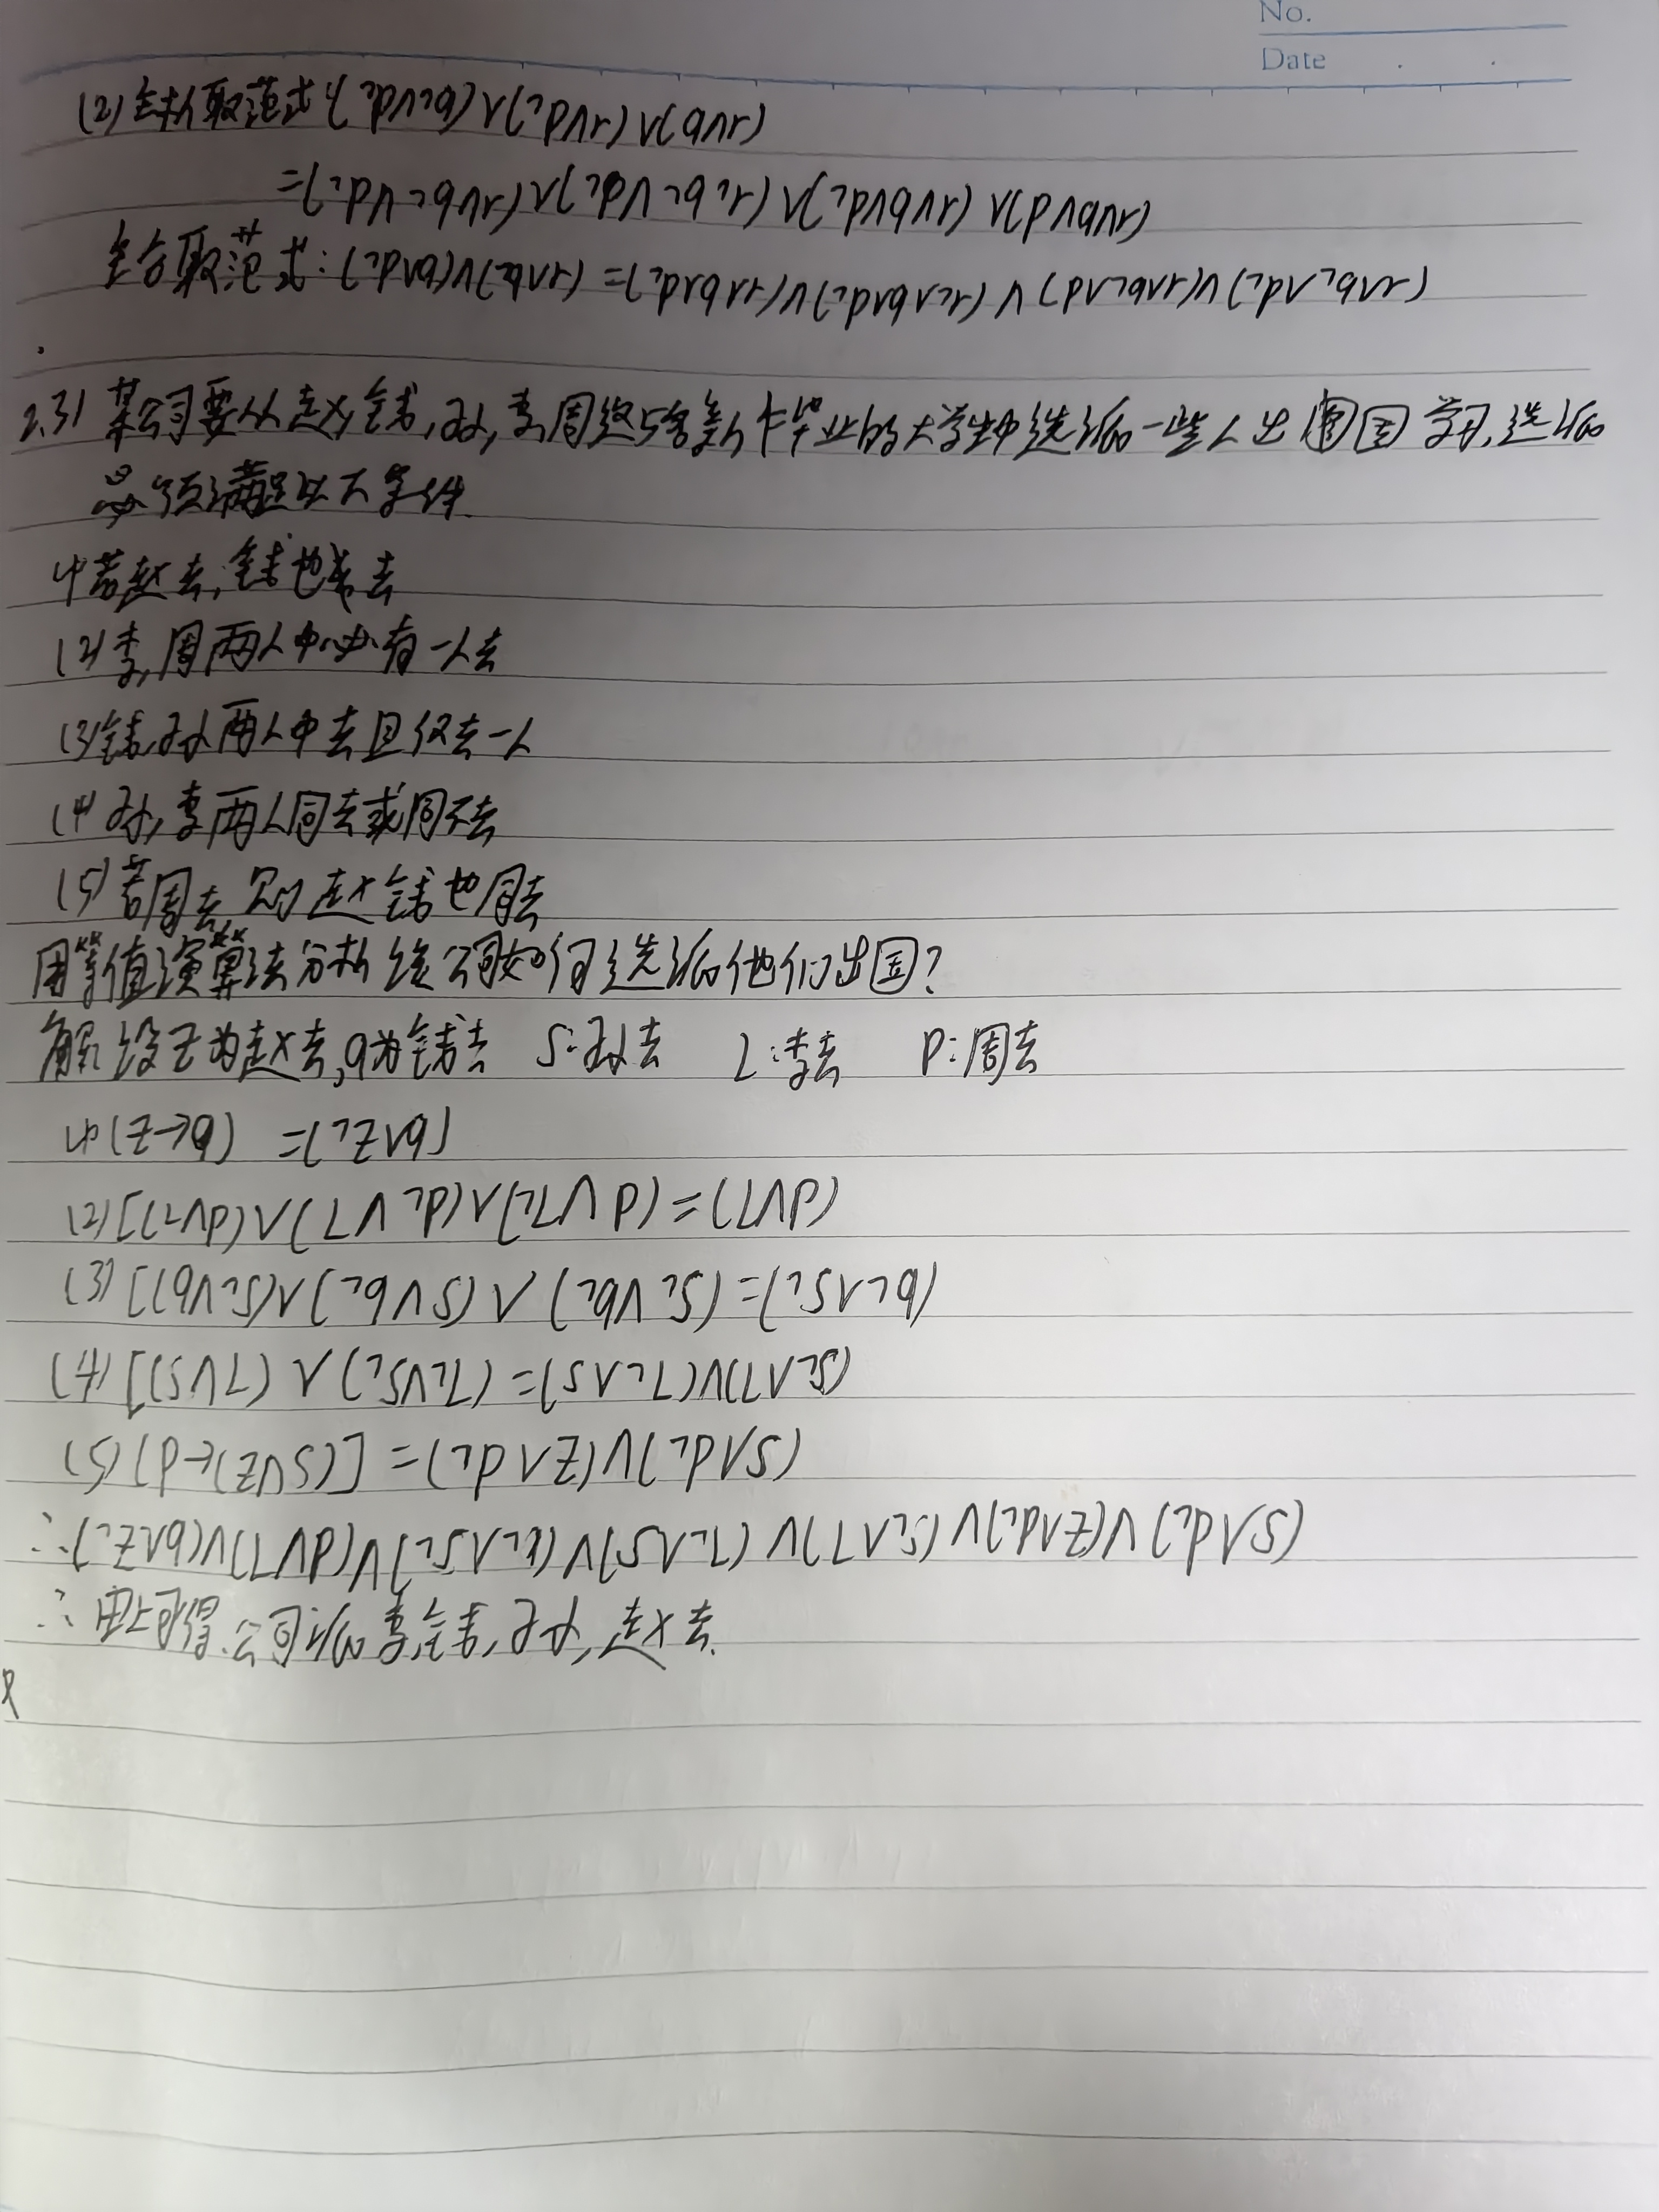 No.
Date
(2) 主析取范式 (¬p∧¬q)∨(¬p∧r)∨(q∧r)
=(¬p∧¬q∧r)∨(¬p∧¬q∧¬r)∨(¬p∧q∧r)∨(p∧q∧r)
主合取范式:(¬p∨q)∧(¬q∨r)=(¬p∨q∨r)∧(¬p∨q∨¬r)∧(p∨¬q∨r)∧(¬p∨¬q∨r)
2.31 某公司要从赵,钱,孙,李,周五名新毕业的大学生中选派一些人出国学习,选派
必须满足以下条件
(1)若赵去,钱也去
(2)李,周两人中必有一人去
(3)钱,孙两人中去且仅去一人
(4)孙,李两人同去或同不去
(5)若周去,则赵钱也同去
用等值演算法分析该公司如何选派他们出国?
解:设Z为赵去,q为钱去 S:孙去 L:李去 P:周去
(1)(Z→q) =(¬Z∨q)
(2)[(L∧p)∨(L∧¬p)∨(¬L∧p)=(L∨p)
(3)[(q∧¬S)∨(¬q∧S)∨(¬q∧¬S)=(¬S∨¬q)
(4)[(S∧L)∨(¬S∧¬L)=(S∨¬L)∧(¬S∨L)
(5)(p→(Z∧S)]=(¬p∨Z)∧(¬p∨S)
∴(¬Z∨q)∧(L∨p)∧(¬S∨¬q)∧(S∨¬L)∧(¬S∨L)∧(¬p∨Z)∧(¬p∨S)
∴由上可得,公司派李,钱,孙,赵去.